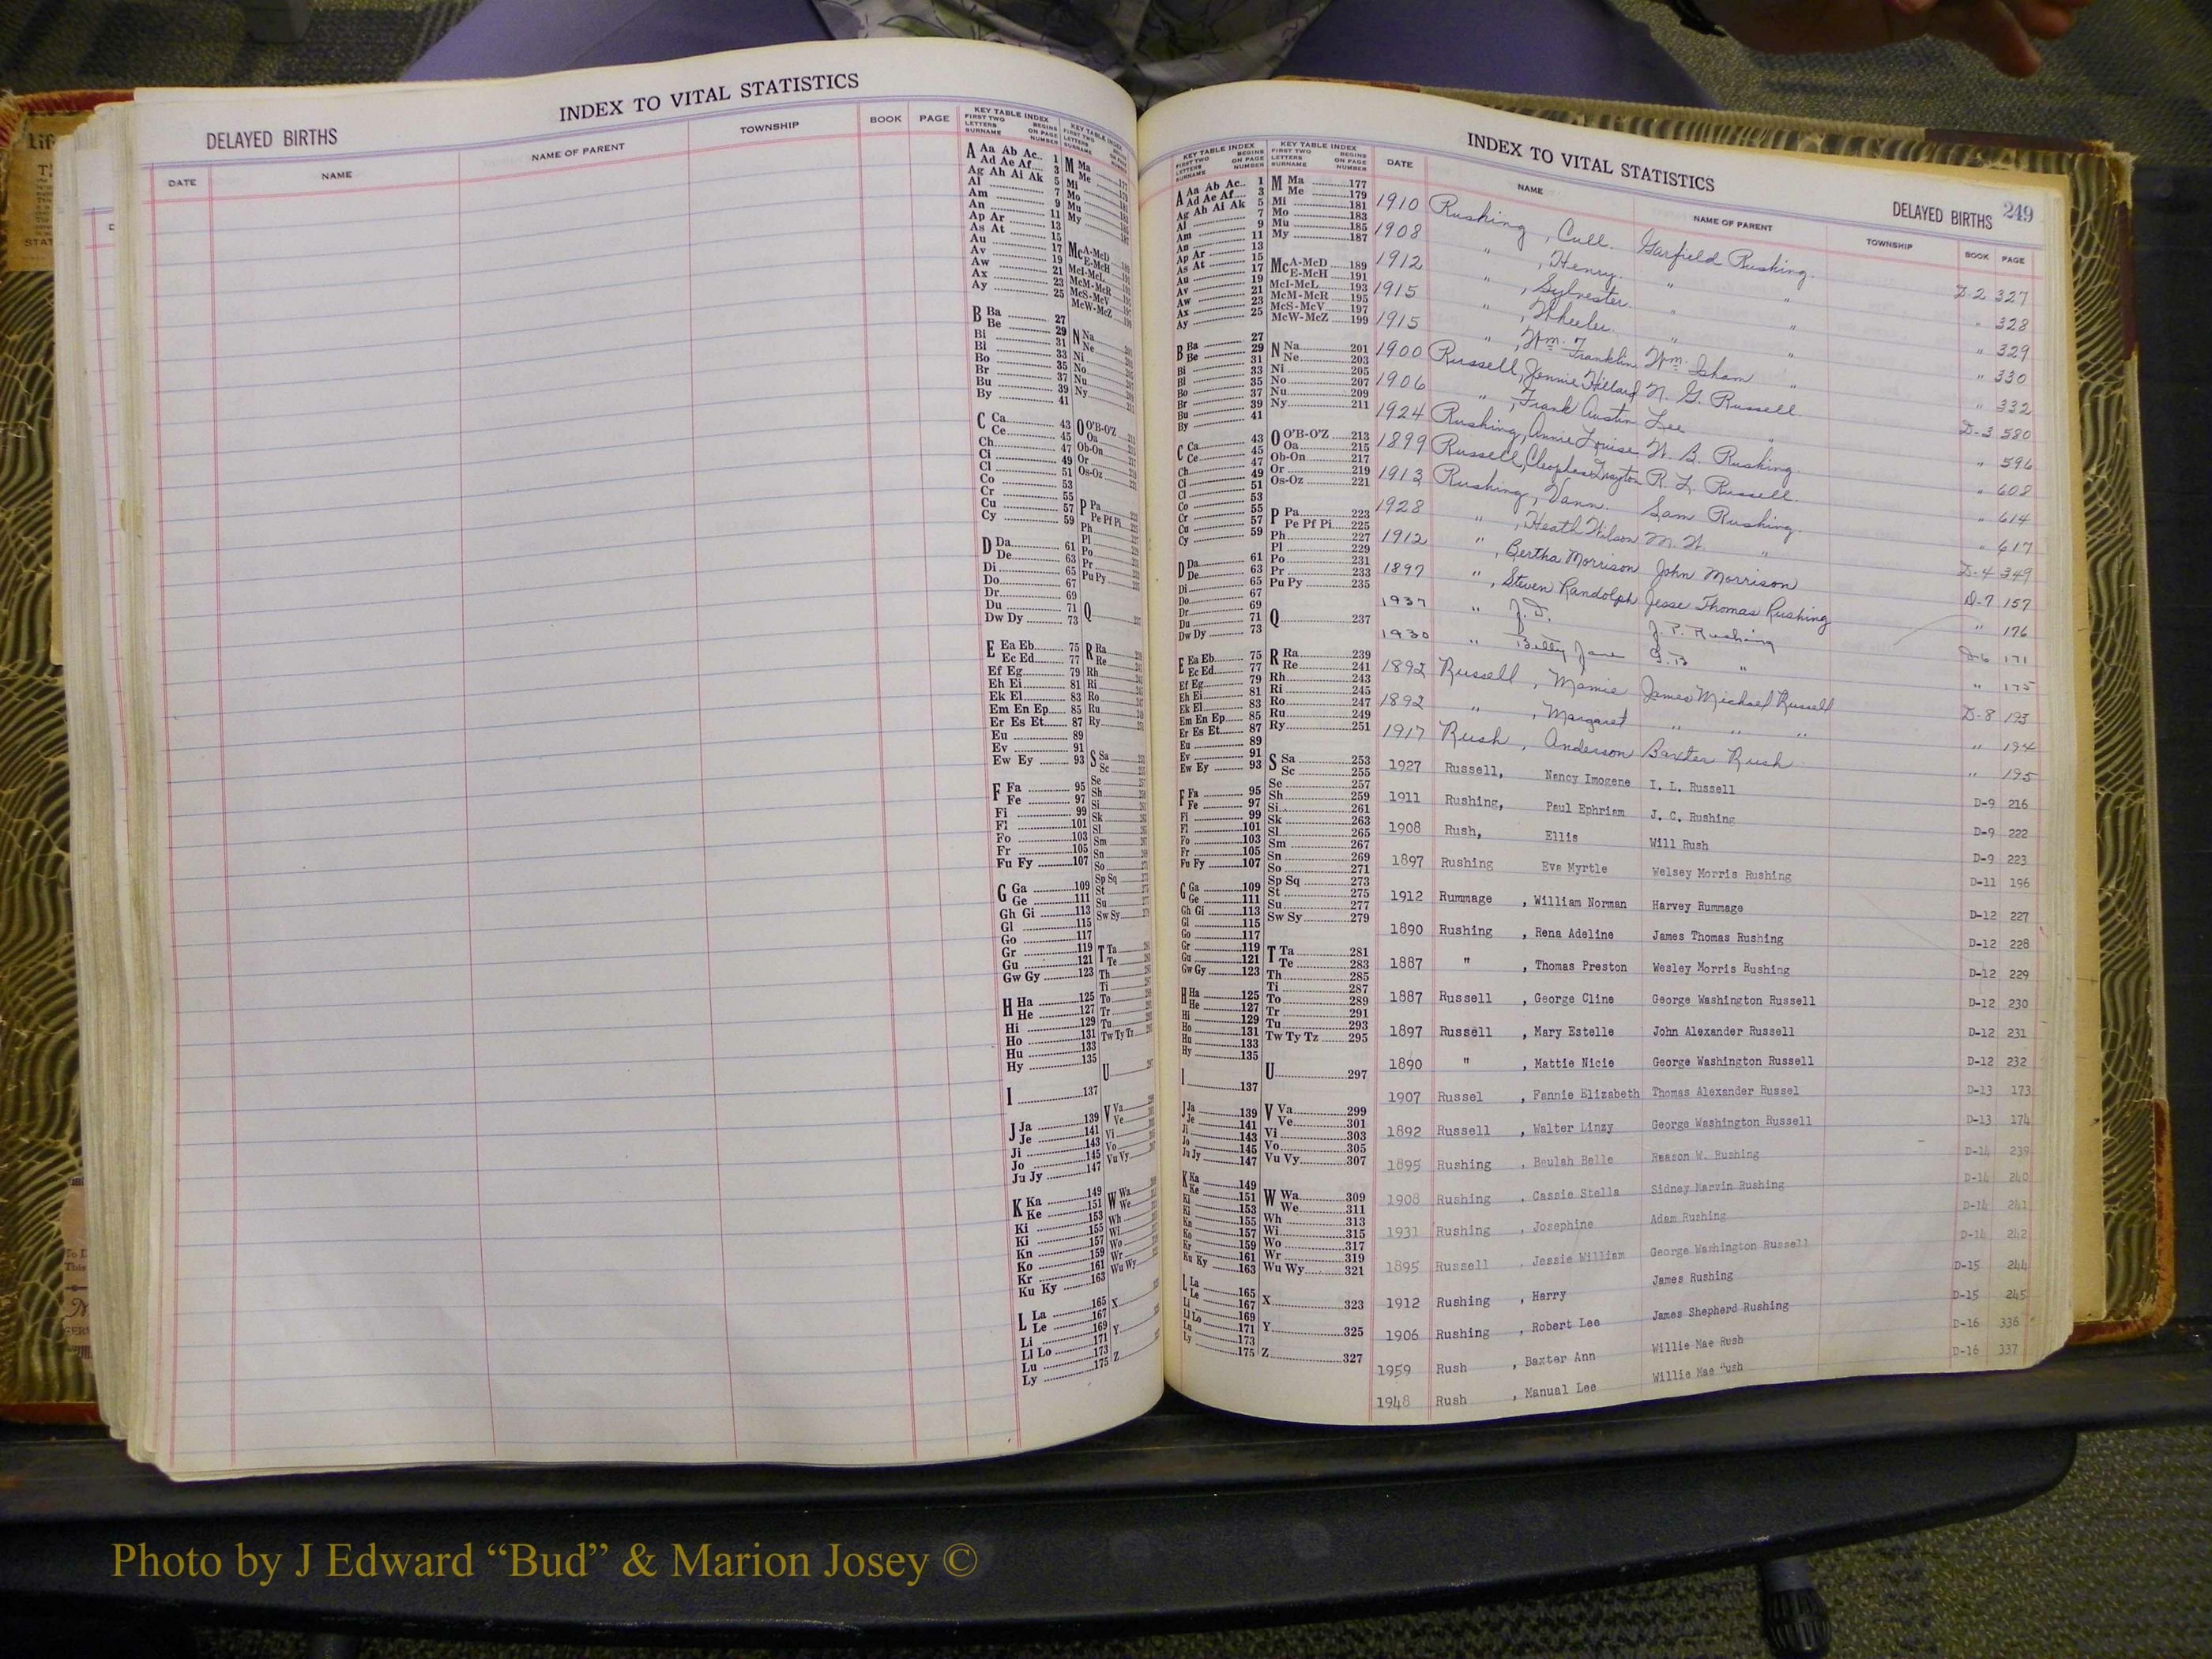 INDEX TO VITAL STATISTICS
DELAYED BIRTHS
DATE NAME NAME OF PARENT TOWNSHIP BOOK PAGE
KEY TABLE INDEX
FIRST TWO LETTERS SURNAME BEGINS ON PAGE NUMBER
A Aa Ab Ac.. 1
Ad Ae Af.... 3
Ag Ah Ai Ak 5
Al 7
Am 9
An 11
Ap Ar 13
As At 15
Au 17
Av 19
Aw 21
Ax 23
Ay 25
B Ba 27
Be 29
Bi 31
Bl 33
Bo 35
Br 37
Bu 39
By 41
C Ca 43
Ce 45
Ch 47
Ci 49
Cl 51
Co 53
Cr 55
Cu 57
Cy 59
D Da 61
De 63
Di 65
Do 67
Dr 69
Du 71
Dw Dy 73
E Ea Eb 75
Ec Ed 77
Ef Eg 79
Eh Ei 81
Ek El 83
Em En Ep 85
Er Es Et 87
Eu 89
Ev 91
Ew Ey 93
F Fa 95
Fe 97
Fi 99
Fl 101
Fo 103
Fr 105
Fu Fy 107
G Ga 109
Ge 111
Gh Gi 113
Gl 115
Go 117
Gr 119
Gu 121
Gw Gy 123
H Ha 125
He 127
Hi 129
Ho 131
Hu 133
Hy 135
I 137
J Ja 139
Je 141
Ji 143
Jo 145
Ju Jy 147
K Ka 149
Ke 151
Ki 153
Ki 155
Kn 157
Ko 159
Kr 161
Ku Ky 163
L La 165
Le 167
Li 169
Ll Lo 171
Lu 173
Ly 175
INDEX TO VITAL STATISTICS
DELAYED BIRTHS 249
KEY TABLE INDEX
FIRST TWO LETTERS SURNAME BEGINS ON PAGE NUMBER
M Ma 177
Me 179
Mi 181
Mo 183
Mu 185
My 187
McA-McD 189
E-McH 191
McI-McL 193
McM-McR 195
McS-McV 197
McW-McZ 199
N Na 201
Ne 203
Ni 205
No 207
Nu 209
Ny 211
O O'B-O'Z 213
Oa 215
Ob-On 217
Or 219
Os-Oz 221
P Pa 223
Pe Pf Pi 225
Ph 227
Pl 229
Po 231
Pr 233
Pu Py 235
Q 237
R Ra 239
Re 241
Rh 243
Ri 245
Ro 247
Ru 249
Ry 251
S Sa 253
Sc 255
Se 257
Sh 259
Si 261
Sk 263
Sl 265
Sm 267
Sn 269
So 271
Sp Sq 273
St 275
Su 277
Sw Sy 279
T Ta 281
Te 283
Th 285
Ti 287
To 289
Tr 291
Tu 293
Tw Ty Tz 295
U 297
V Va 299
Ve 301
Vi 303
Vo 305
Vu Vy 307
W Wa 309
We 311
Wh 313
Wi 315
Wo 317
Wr 319
Wu Wy 321
X 323
Y 325
Z 327
DATE NAME NAME OF PARENT TOWNSHIP BOOK PAGE
1910 Rushing, Cull. Garfield Rushing. D-2 327
1908 " , Henry. " " " 328
1912 " , Sylvester. " " " 329
1915 " , Wheeler. " " " 330
1915 " , Wm. Franklin Wm. Isham " " 332
1900 Russell, Jennie Hillard N. G. Russell D-3 580
1906 " , Frank Austin Lee " " 596
1924 Rushing, Annie Louise W. B. Rushing. " 608
1899 Russell, Cleophas Drayton R. L. Russell. " 614
1913 Rushing, Vann. Sam Rushing. " 617
1928 " , Heath Wilson M. W. " D-4 349
1912 " , Bertha Morrison John Morrison D-7 157
1897 " , Steven Randolph Jesse Thomas Rushing " 176
1937 " J. D. J. P. Rushing D-6 171
1930 " Betty Jane G. B " " 175
1892 Russell, Mamie James Michael Russell D-8 193
1892 " , Margaret " " " " 194
1917 Rush, Anderson Baxter Rush " 195
1927 Russell, Nancy Imogene I. L. Russell D-9 216
1911 Rushing, Paul Ephriam J. C. Rushing D-9 222
1908 Rush, Ellis Will Rush D-9 223
1897 Rushing Eva Myrtle Welsey Morris Rushing D-11 196
1912 Rummage , William Norman Harvey Rummage D-12 227
1890 Rushing , Rena Adeline James Thomas Rushing D-12 228
1887 " , Thomas Preston Wesley Morris Rushing D-12 229
1887 Russell , George Cline George Washington Russell D-12 230
1897 Russell , Mary Estelle John Alexander Russell D-12 231
1890 " , Mattie Nicie George Washington Russell D-12 232
1907 Russel , Fannie Elizabeth Thomas Alexander Russel D-13 173
1892 Russell , Walter Linzy George Washington Russell D-13 174
1895 Rushing , Beulah Belle Reason W. Rushing D-14 239
1908 Rushing , Cassie Stella Sidney Marvin Rushing D-14 240
1931 Rushing , Josephine Adam Rushing D-14 241
1895 Russell , Jessie William George Washington Russell D-14 242
1912 Rushing , Harry James Rushing D-15 244
1906 Rushing , Robert Lee James Shepherd Rushing D-15 245
1959 Rush , Baxter Ann Willie Mae Rush D-16 336
1948 Rush , Manual Lee Willie Mae Rush D-16 337
Photo by J Edward “Bud” & Marion Josey ©